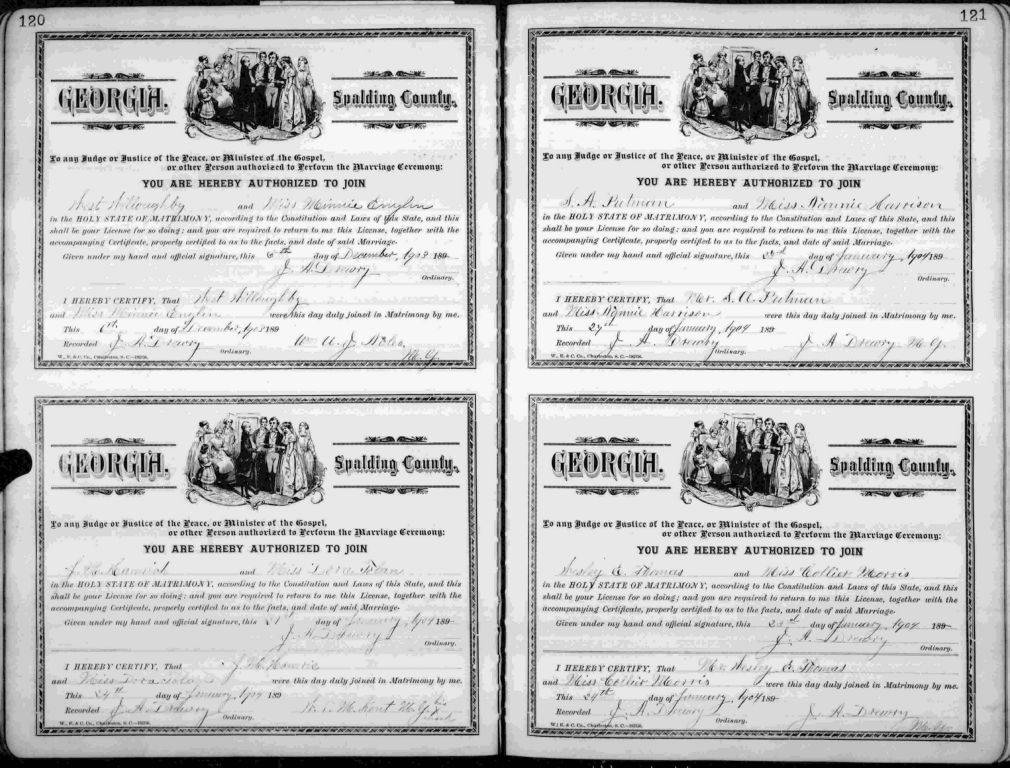 120
GEORGIA. Spalding County.
To any Judge or Justice of the Peace, or Minister of the Gospel,
or other Person authorized to Perform the Marriage Ceremony:
YOU ARE HEREBY AUTHORIZED TO JOIN
West Willoughby and Miss Minnie English
in the HOLY STATE OF MATRIMONY, according to the Constitution and Laws of this State, and this
shall be your License for so doing; and you are required to return to me this License, together with the
accompanying Certificate, properly certified to as to the facts, and date of said Marriage.
Given under my hand and official signature, this 5th day of December, 1903 189
J. A. Drewry
Ordinary.
I HEREBY CERTIFY, That West Willoughby
and Miss Minnie English were this day duly joined in Matrimony by me.
This 6th day of December, 1903 189
Recorded J. A. Drewry Wm A. J.
Ordinary. M. G.
W., E. & C. Co., Charleston, S. C.
GEORGIA. Spalding County.
To any Judge or Justice of the Peace, or Minister of the Gospel,
or other Person authorized to Perform the Marriage Ceremony:
YOU ARE HEREBY AUTHORIZED TO JOIN
and Miss Dora
in the HOLY STATE OF MATRIMONY, according to the Constitution and Laws of this State, and this
shall be your License for so doing; and you are required to return to me this License, together with the
accompanying Certificate, properly certified to as to the facts, and date of said Marriage.
Given under my hand and official signature, this 21st day of January, 1904 189
J. A. Drewry
Ordinary.
I HEREBY CERTIFY, That
and Miss Dora were this day duly joined in Matrimony by me.
This 24th day of January, 1904 189
Recorded J. A. Drewry M. G.
Ordinary.
W., E. & C. Co., Charleston, S. C.
121
GEORGIA. Spalding County.
To any Judge or Justice of the Peace, or Minister of the Gospel,
or other Person authorized to Perform the Marriage Ceremony:
YOU ARE HEREBY AUTHORIZED TO JOIN
S. A. Putman and Miss Nannie Harrison
in the HOLY STATE OF MATRIMONY, according to the Constitution and Laws of this State, and this
shall be your License for so doing; and you are required to return to me this License, together with the
accompanying Certificate, properly certified to as to the facts, and date of said Marriage.
Given under my hand and official signature, this 23rd day of January, 1904 189
J. A. Drewry
Ordinary.
I HEREBY CERTIFY, That Mr. S. A. Putman
and Miss Nannie Harrison were this day duly joined in Matrimony by me.
This 27th day of January, 1904 189
Recorded J. A. Drewry J. A. Drewry M. G.
Ordinary.
W., E. & C. Co., Charleston, S. C.
GEORGIA. Spalding County.
To any Judge or Justice of the Peace, or Minister of the Gospel,
or other Person authorized to Perform the Marriage Ceremony:
YOU ARE HEREBY AUTHORIZED TO JOIN
Wesley E. Thomas and Miss Collier Morris
in the HOLY STATE OF MATRIMONY, according to the Constitution and Laws of this State, and this
shall be your License for so doing; and you are required to return to me this License, together with the
accompanying Certificate, properly certified to as to the facts, and date of said Marriage.
Given under my hand and official signature, this 23rd day of January, 1904 189
J. A. Drewry
Ordinary.
I HEREBY CERTIFY, That Mr. Wesley E. Thomas
and Miss Collier Morris were this day duly joined in Matrimony by me.
This 24th day of January, 1904 189
Recorded J. A. Drewry J. A. Drewry
Ordinary. M. G.
W., E. & C. Co., Charleston, S. C.